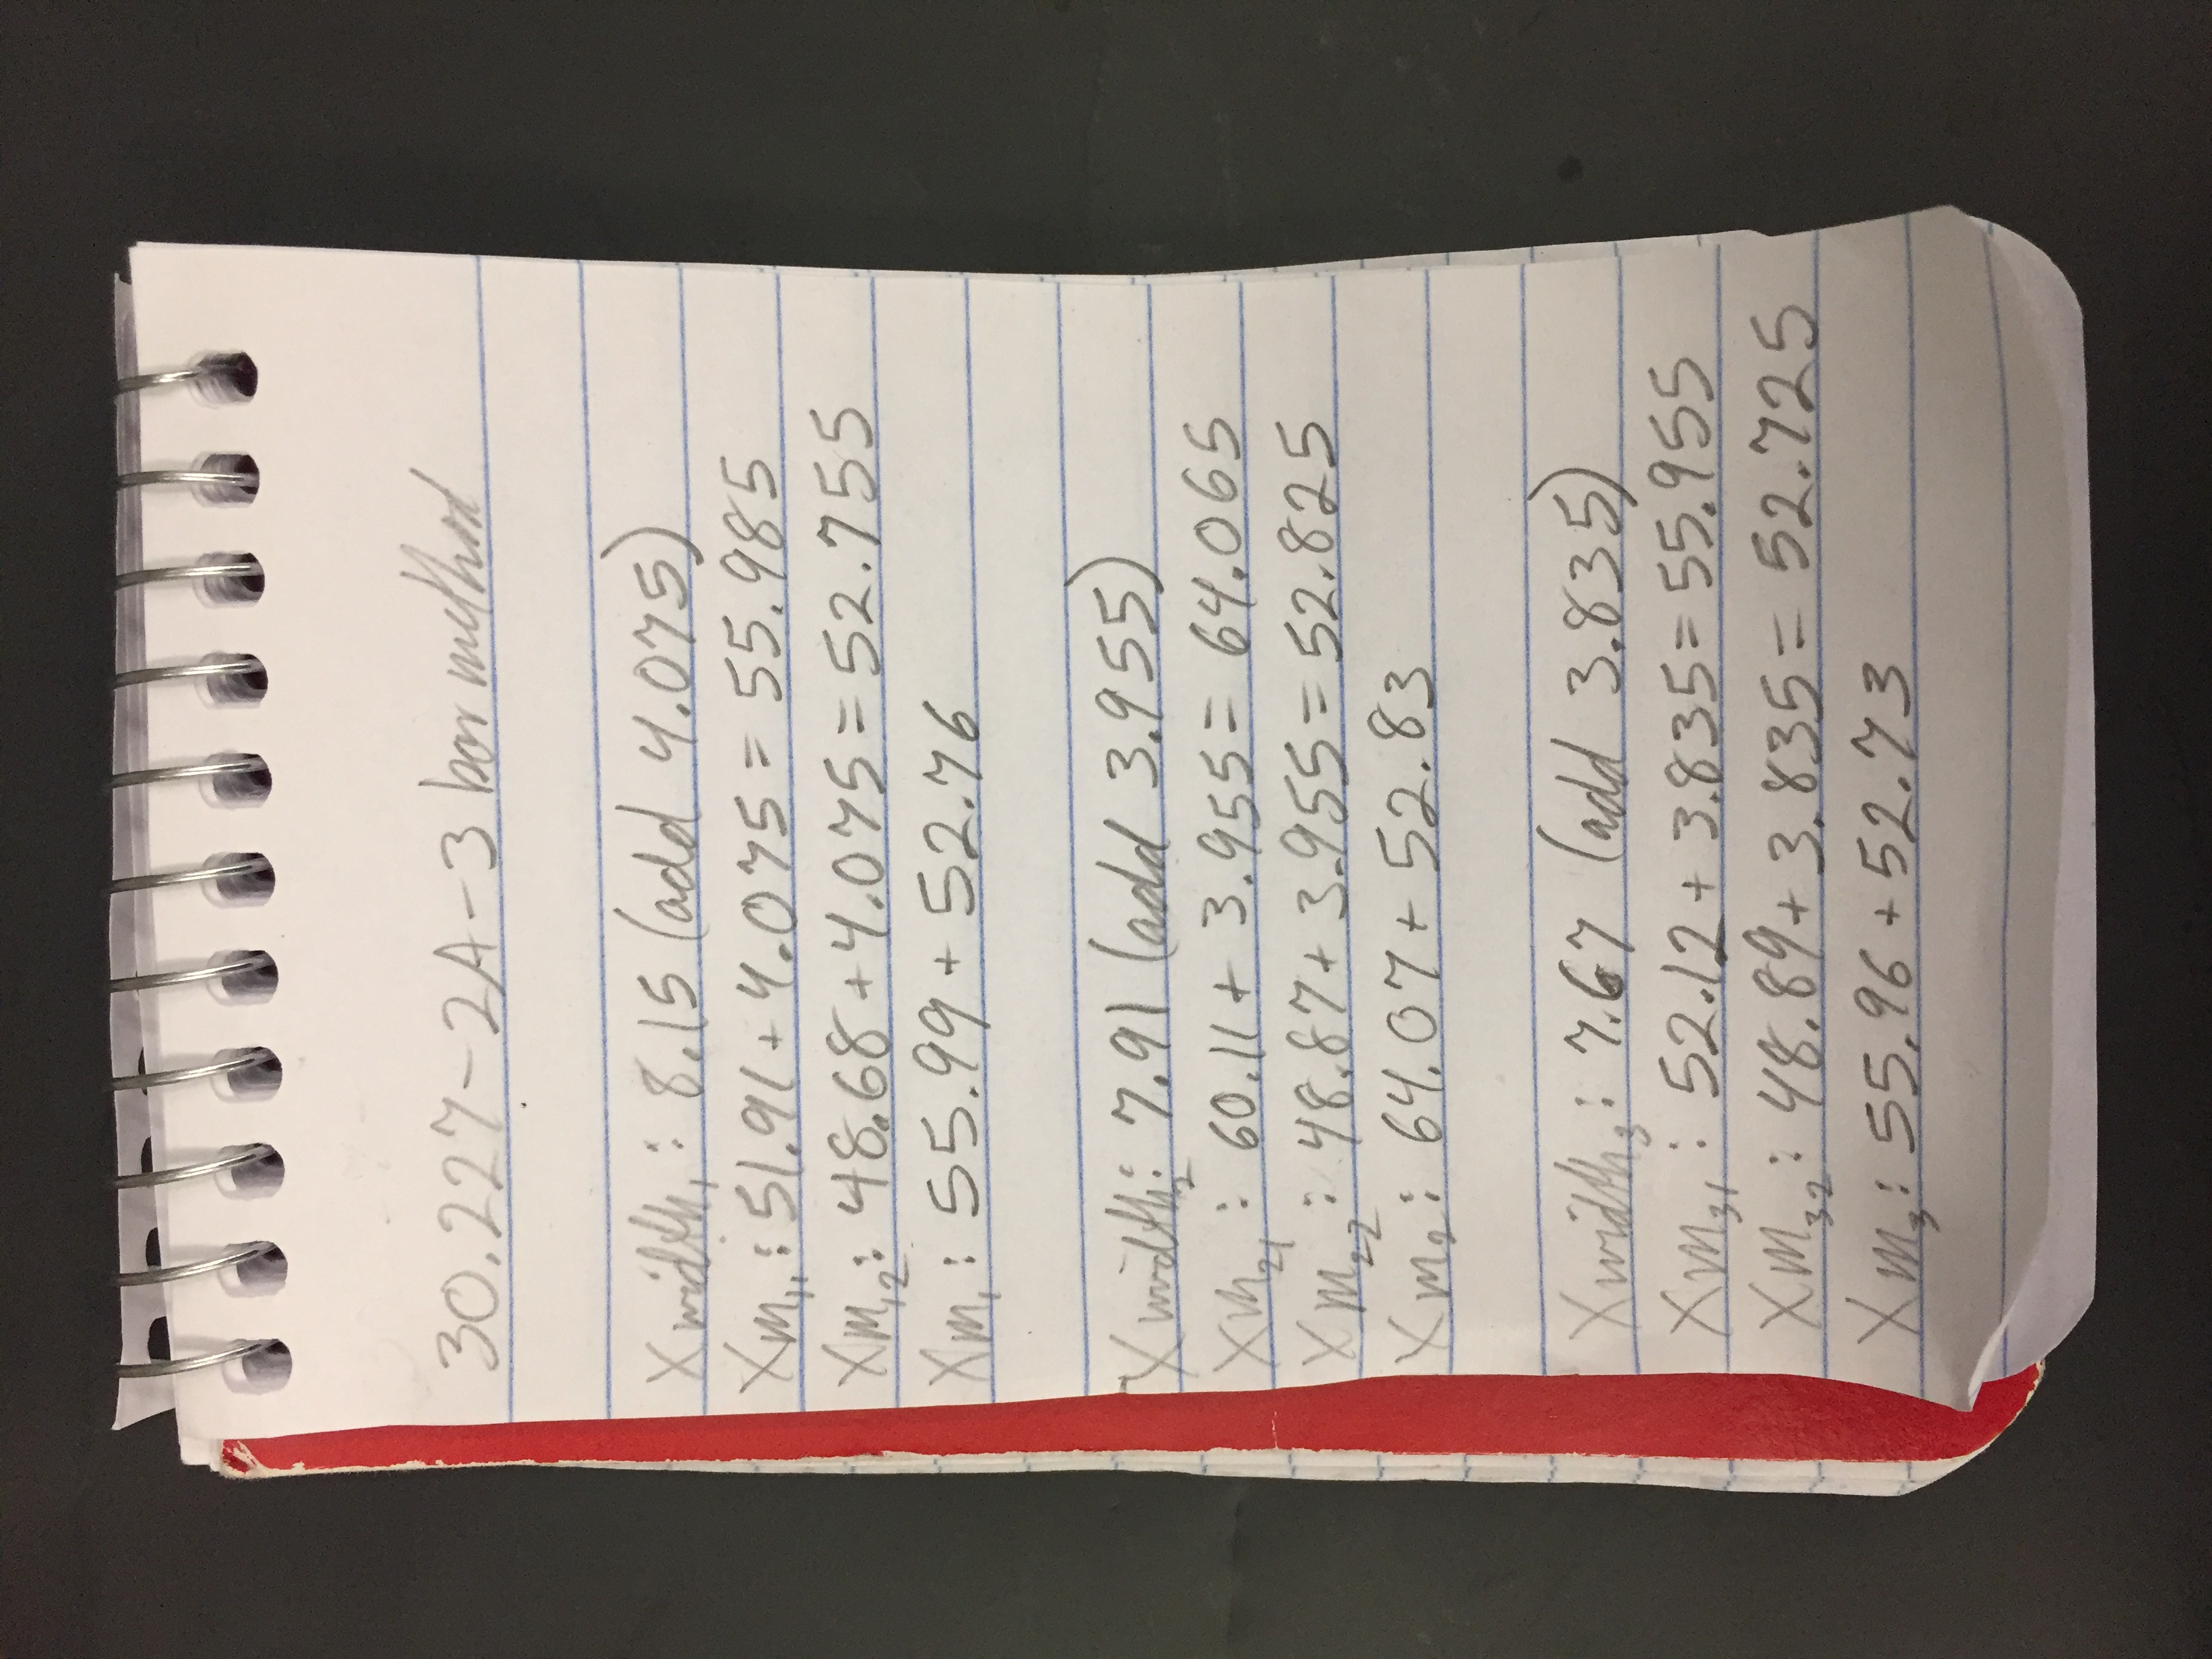 30.227-2A-3 bar method
Xwidth₁: 8.15 (add 4.075)
Xm₁₁: 51.91 + 4.075 = 55.985
Xm₁₂: 48.68 + 4.075 = 52.755
Xm₁: 55.99 + 52.76
Xwidth₂: 7.91 (add 3.955)
Xm₂₁: 60.11 + 3.955 = 64.065
Xm₂₂: 48.87 + 3.955 = 52.825
Xm₂: 64.07 + 52.83
Xwidth₃: 7.67 (add 3.835)
Xm₃₁: 52.12 + 3.835 = 55.955
Xm₃₂: 48.89 + 3.835 = 52.725
Xm₃: 55.96 + 52.73